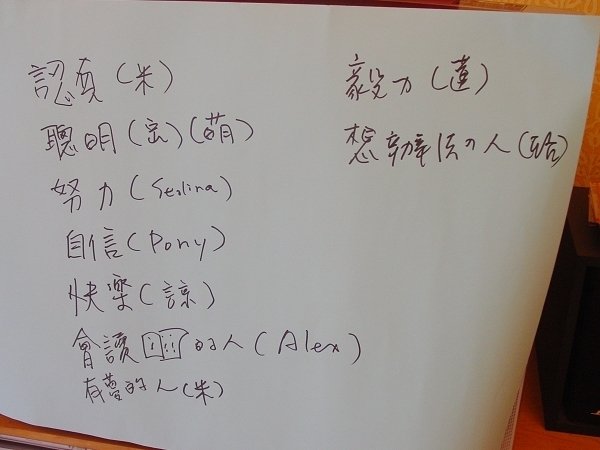 認真(米)
聰明(宏)(萌)
努力(Selina)
自信(Pony)
快樂(諒)
會讀的人(Alex)
有夢的人(米)
毅力(蓮)
想辦法的人